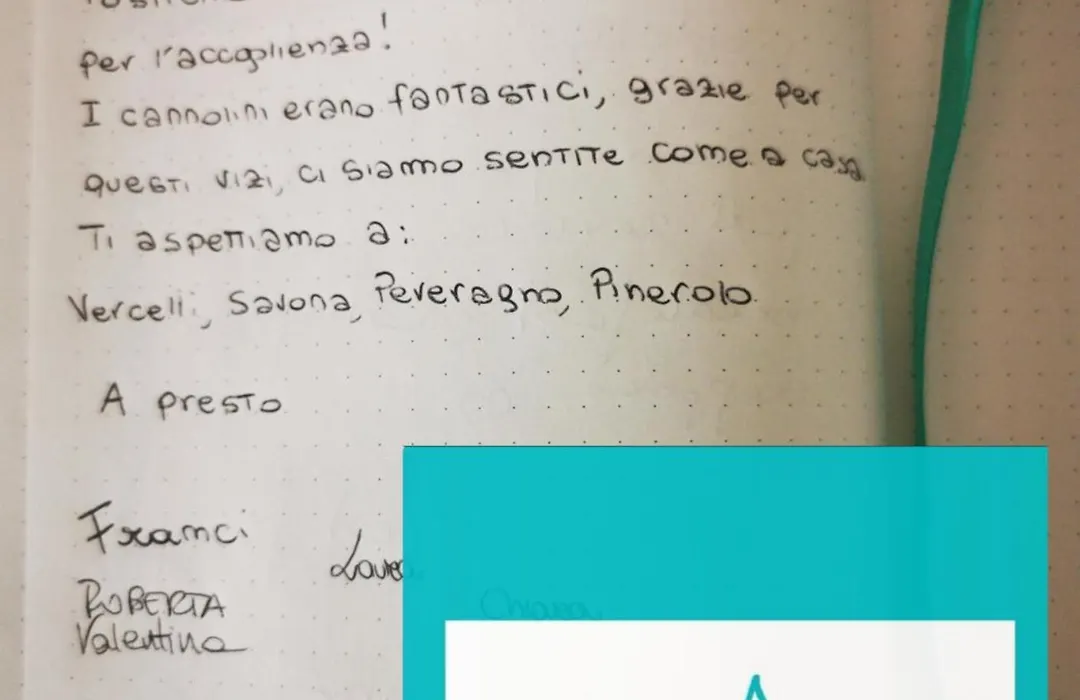 per l'accoglienza!
I cannolini erano fantastici, grazie per
questi vizi, ci siamo sentite come a casa
Ti aspettiamo a:
Vercelli, Savona, Peveragno, Pinerolo
A presto
Franci
ROBERTA
Valentina
Chiara